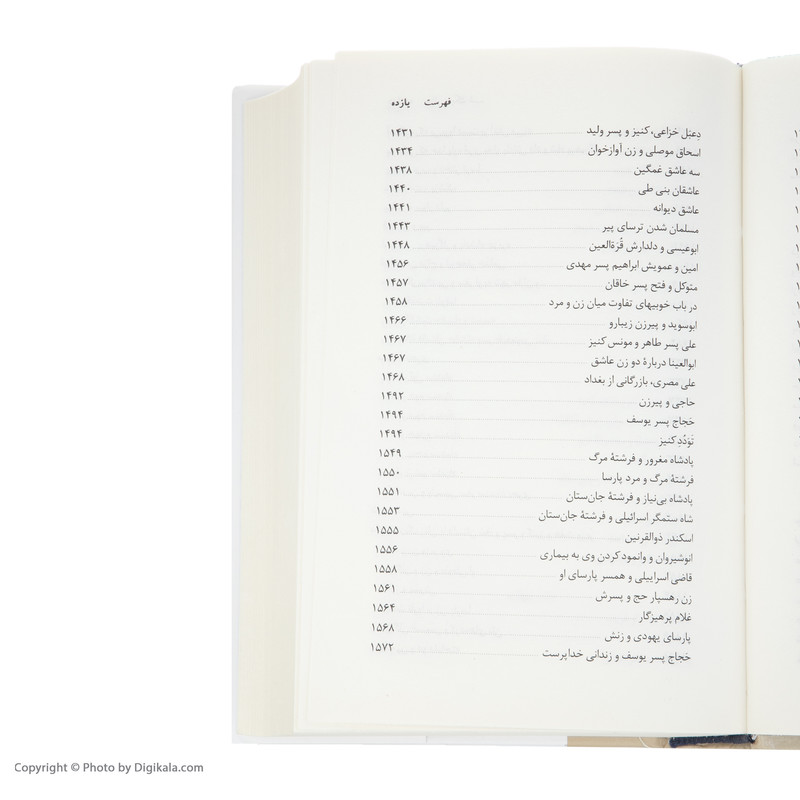 فهرست یازده
دِعبَل خزاعی، کنیز و پسر ولید ۱۴۳۱
اسحاق موصلی و زن آوازخوان ۱۴۳۴
سه عاشق غمگین ۱۴۳۸
عاشقان بنی طی ۱۴۴۰
عاشق دیوانه ۱۴۴۱
مسلمان شدن ترسای پیر ۱۴۴۳
ابوعیسی و دلدارش قُرّةالعین ۱۴۴۸
امین و عمویش ابراهیم پسر مهدی ۱۴۵۶
متوکل و فتح پسر خاقان ۱۴۵۷
در باب خوبیهای تفاوت میان زن و مرد ۱۴۵۸
ابوسوید و پیرزن زیبارو ۱۴۶۶
علی پسر طاهر و مونس کنیز ۱۴۶۷
ابوالعینا دربارهٔ دو زن عاشق ۱۴۶۷
علی مصری، بازرگانی از بغداد ۱۴۶۸
حاجی و پیرزن ۱۴۹۲
حَجاج پسر یوسف ۱۴۹۴
تَوَدُّدِ کنیز ۱۴۹۴
پادشاه مغرور و فرشتهٔ مرگ ۱۵۴۹
فرشتهٔ مرگ و مرد پارسا ۱۵۵۰
پادشاه بی‌نیاز و فرشتهٔ جان‌ستان ۱۵۵۱
شاه ستمگر اسرائیلی و فرشتهٔ جان‌ستان ۱۵۵۳
اسکندر ذوالقرنین ۱۵۵۵
انوشیروان و وانمود کردن وی به بیماری ۱۵۵۶
قاضی اسراییلی و همسر پارسای او ۱۵۵۸
زن رهسپار حج و پسرش ۱۵۶۱
غلام پرهیزگار ۱۵۶۴
پارسای یهودی و زنش ۱۵۶۸
حَجاج پسر یوسف و زندانی خداپرست ۱۵۷۲
Copyright © Photo by Digikala.com